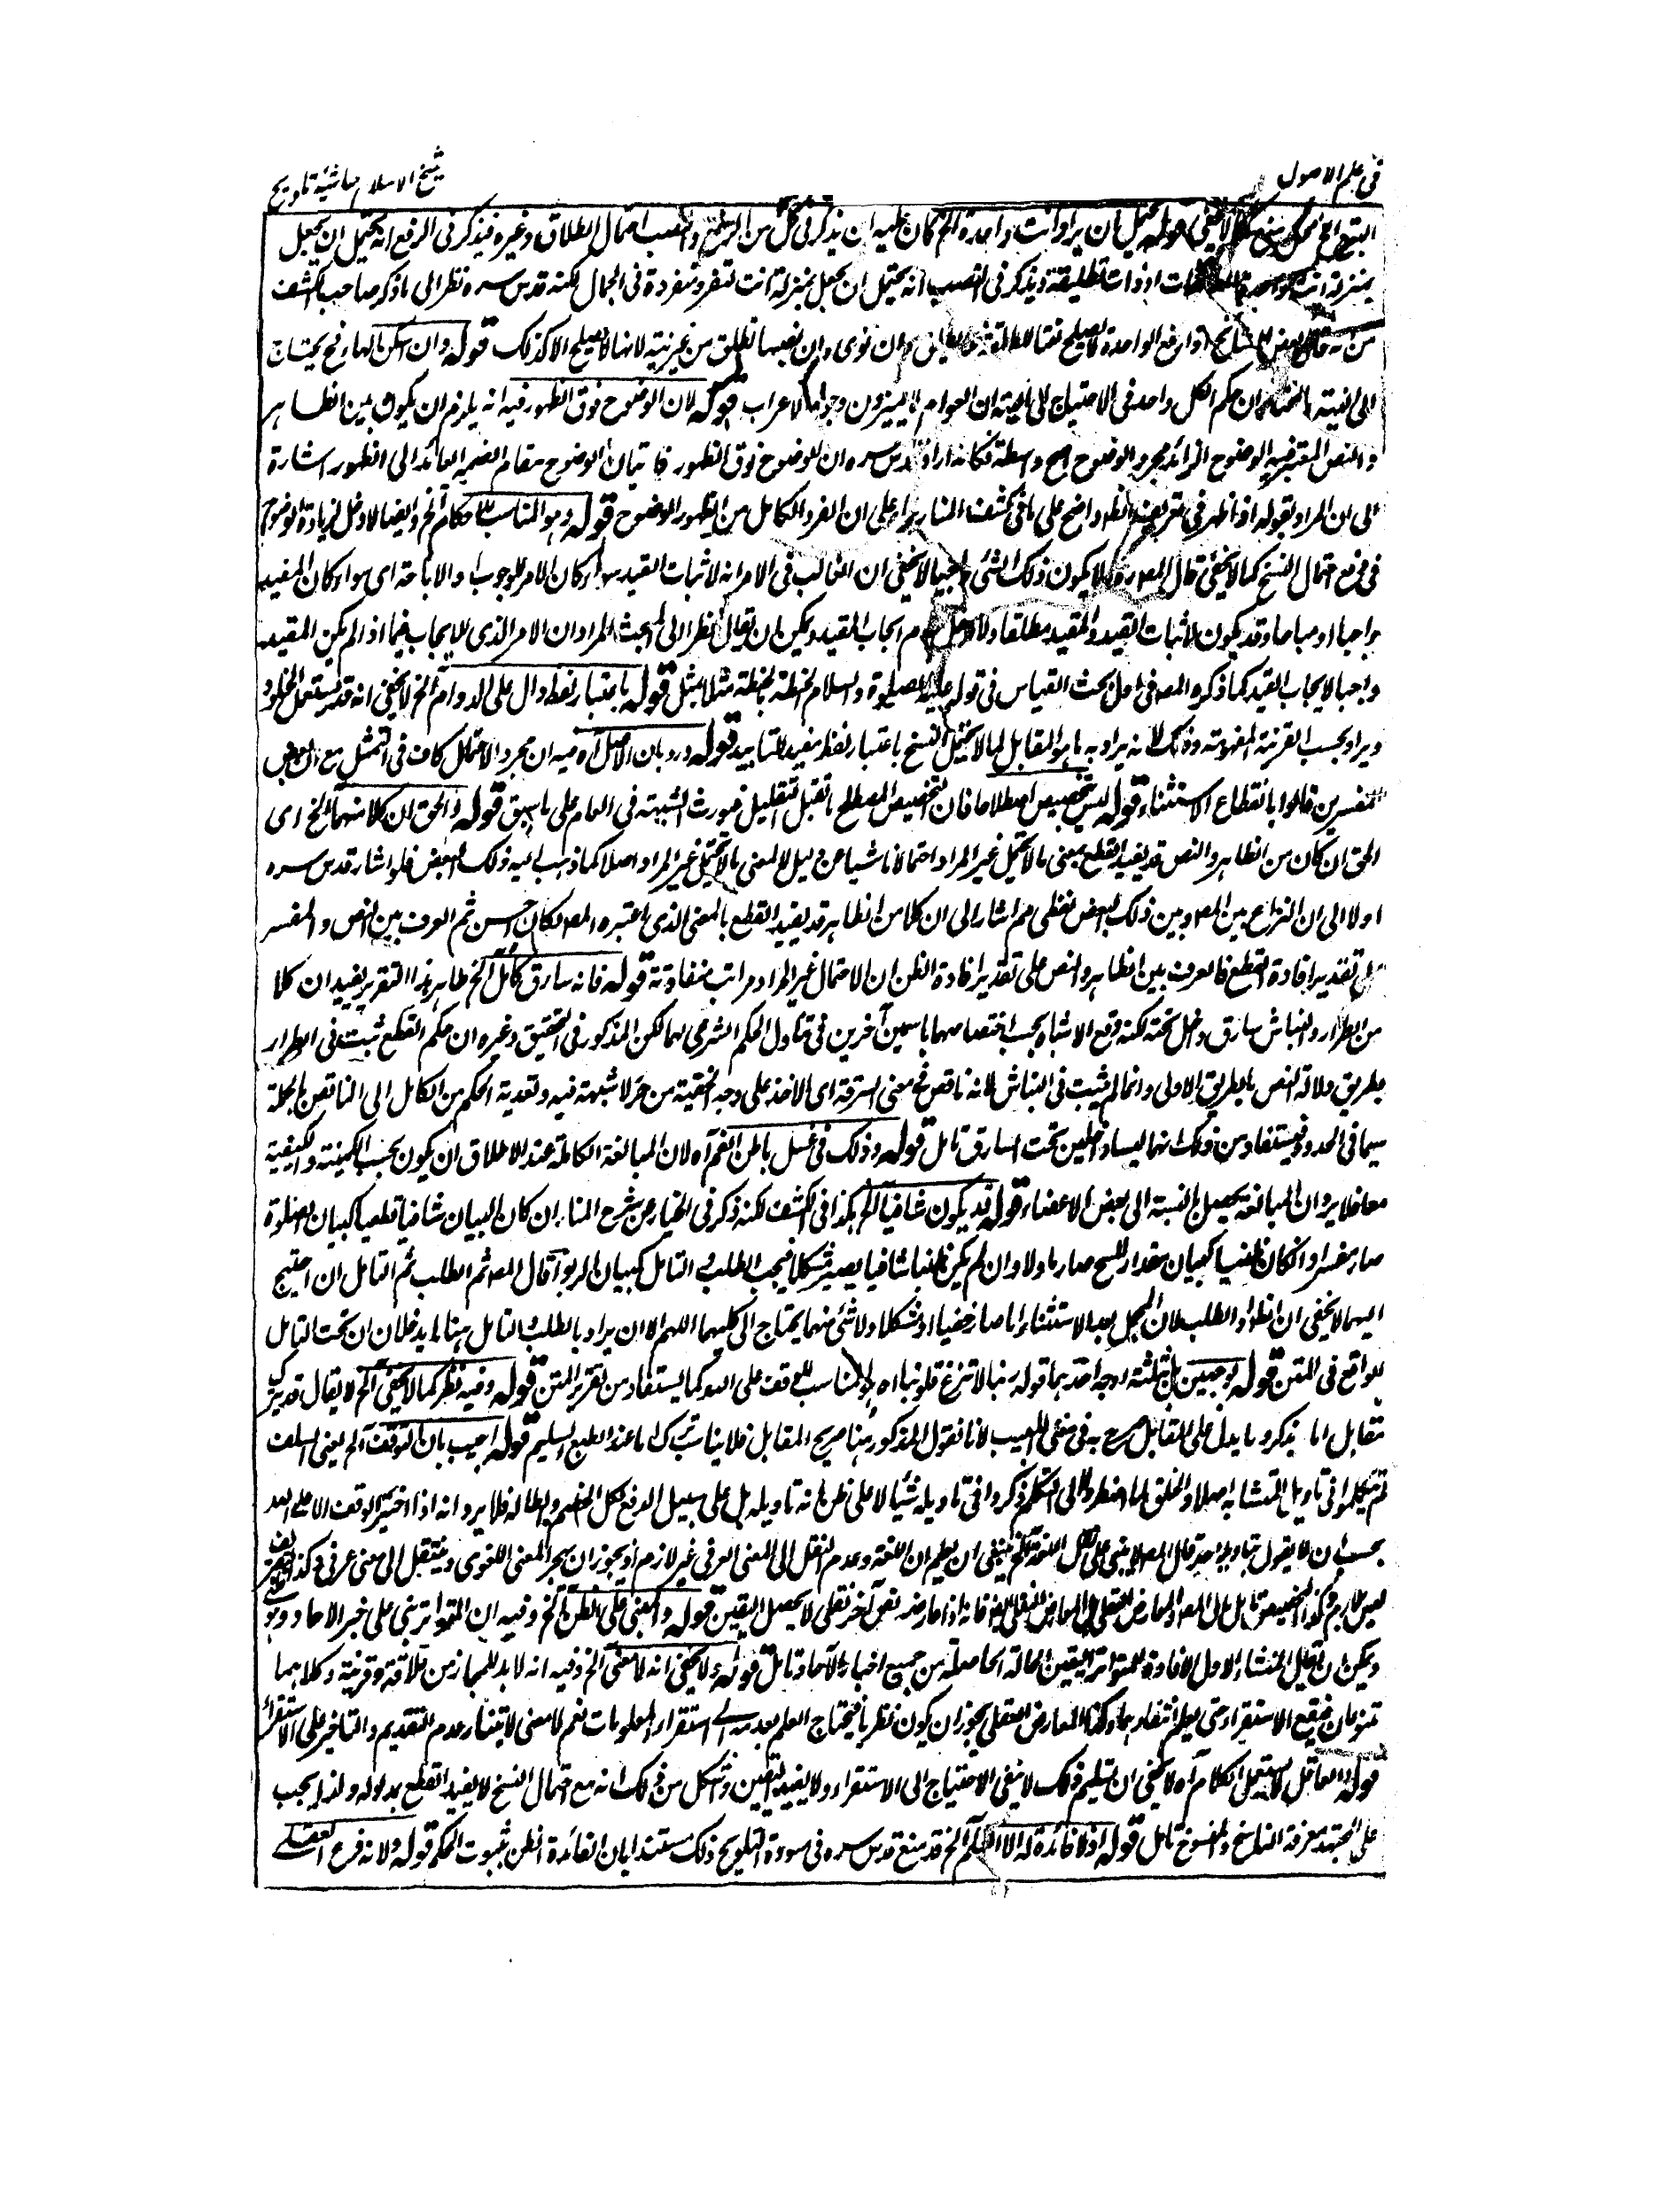 في علم الاصول
شيخ الاسلام حاشية تلويح
قوله يحتمل ان يراد انت واحدة الخ كان عليه ان يذكر في كل من الرفع والنصب احتمال الطلاق وغيره فيذكر في الرفع انه يحتمل ان يجعل
بمنزلة انت او ذات تطليقة ويذكر في النصب انه يحتمل ان يجعل بمنزلة انت تتفرد منفردة في الجمال لكنه قدس سره نظر الى ما ذكر صاحب الكشف
من انه قال بعض الواحدة لا يصلح نعتا للطلقة وان نوى وان نصبها تطلق من غير نية لانها لا يصلح الا كذلك قوله وان اسكن الهاء فح يحتاج
الى النية ان حكم الكل واحد في الاحتياج الى النية ان العوام لا يميزون وجوه الاعراب قوله لان الوضوح فوق الظهور فيه انه يلزم ان يكون بين الظاهر
والنص المعتبر فيه الوضوح الزائد مجرد الوضوح واسطة فكانه اراد قدس سره ان الوضوح فوق الظهور فاتيان الوضوح مقام الضمير العائد الى الظهور اشارة
الى ان المراد بقوله اذا ظهر في تعريف على ما في كشف المنار على ان الفرد الكامل من الظهور الوضوح قوله وهو المناسب للاحكام الخ وايضا لا دخل لزيادة الوضوح
في رفع احتمال النسخ كما لا يخفى قال المص ولا يكون ذلك الشيء واجبا لا يخفى ان الغالب في الامر انه لاثبات القيد سواء كان الامر للوجوب او الاباحة اى سواء كان المقيد
واجبا او مباحا وقد يكون لاثبات القيد والمقيد مطلقا ايجاب المقيد ويمكن ان يقال نظرا الى المبحث المراد ان الامر الذى للايجاب فيما اذا لم يكن المقيد
واجبا لايجاب القيد كما ذكره المص في اول بحث القياس في قوله عليه الصلوة والسلام الحنطة بالحنطة مثلا بمثل قوله باعتبار لفظ دال على الدوام الخ لا يخفى انه قد يستعمل الخلود
ويراد بحسب القرينة وذلك لانه يراد به ما هو المقابل لما لا يحتمل النسخ باعتبار لفظ مفيد للتابيد قوله ورد بان الاصل اه فيه ان مجرد الاحتمال كاف في التمثيل مع ان بعض
المفسرين قالوا بانقطاع الاستثناء قوله ليس بتخصيص اصطلاحا فان التخصيص المصطلح ما يقبل التعليل فيورث الشبهة في العام على ما سبق قوله والحق ان كلا منهما الخ اى
الحق ان كان من الظاهر والنص قد يفيد القطع بمعنى ما لا يحتمل غير المراد احتمالا ناشيا من دليل لا لمعنى ما لا يحتمل غير المراد اصلا كما ذهب اليه ذلك البعض فلو اشار قدس سره
اولا الى ان النزاع بين المص وبين ذلك البعض لفظى ثم اشار الى ان كلا من الظاهر قد يفيد القطع بالمعنى الذى اعتبره المص لكان احسن ثم الفرق بين النص والمفسر
على تقدير افادة القطع فالفرق بين الظاهر والنص على تقدير افادة الظن ان لاحتمال غير المراد مراتب متفاوتة قوله فانه سارق كامل الخ ظاهر هذا التقرير يفيد ان كلا
من الطرار والنباش سارق دخل تحته لكنه وقع الاشتباه بحسب اختصاصهما باسمين آخرين في تناول الحكم الشرعى لهما لكن المذكور في التحقيق وغيره ان حكم القطع ثبت في الطرار
بطريق دلالة النص بالطريق الاولى وانما لم يثبت في النباش لانه ناقص في معنى السرقة اى الاخذ على وجه الخفية من حرز لا شبهة فيه وتعدية الحكم من الكامل الى الناقص باطلة
سيما في الحدود فيستفاد من ذلك انهما ليسا داخلين تحت السارق تامل قوله وذلك في غسل باطن الفم اه لان المبالغة الكاملة عند الاطلاق ان يكون بحسب الكمية والكيفية
معا فلا يرد ان المبالغة يحصل بالنسبة الى بعض الاعضاء قوله قد يكون شافيا الخ هكذا في الكشف لكنه ذكر في الخيار عن شرح المنار ان كان البيان شافيا قطعيا كبيان الصلوة
صار مفسرا وان كان ظنيا كبيان مقدار المسح صار ماولا وان لم يكن بيانا شافيا يصير مشكلا فيجب الطلب والتامل كبيان الربوا قال المص ثم الطلب ثم التامل ان احتيج
اليهما لا يخفى ان الطلب لان المجمل بعد الاستثناء اما صار خفيا او مشكلا ولا شئ منهما يحتاج الى كليهما اللهم الا ان يراد بالطلب التامل هنا ما يدخلان تحت التامل
للواقع في المتن قوله بوجهين بل بثلثة اوجه احدهما قوله ربنا لا تزغ قلوبنا اه المناسب للوقف على الله كما يستفاد من تقرير المتن قوله وفيه نظر كما لا يخفى الخ لا يقال قد يترك
مقابل اما بذكر ما يدل على المقابل صرح به في مغنى اللبيب لانا نقول المذكور هنا صريح المقابل فلا يناسب ترك اما عند الطبع السليم قوله اجيب بان التوقف الخ يعنى السلف
لم يتكلموا في تاويل المتشابه اصلا والخلق لما اضطروا الى التكلم ذكروا في تاويله شيئا لا على ظن انه تاويله بل على سبيل الدفع لكل الخصم وابطاله فلا يرد انه اذا اختير الوقف الا على الله
يجب ان لا يقول بتاويله احد قال المص لا يبتنى على نقل اللغة الخ ينبغى ان يعلم ان اللغة وعدم النقل الى المعنى العرفى غير لازم اذ يجوز ان يهجر المعنى اللغوى وينتقل الى معنى عرفى
ليس بلازم وكذا التخصيص تامل قال المص والمعارض العقلى بل المعارض النقلى ايضا فانه اذا عارضه نص آخر نقلى لا يحصل اليقين قوله والمبنى على الظن الخ وفيه ان المتواتر يبنى على خبر الاحاد
ويمكن ان يقال المنشاء الاول لافادة المتواتر اليقين الحالة الحاصلة من جميع اخبار الآحاد تامل قوله ولا يخفى انه لا معنى الخ وفيه انه لا بد للمجاز من علاقة وقرينة وكلاهما
الاستقراء حتى يعلم انتفاءهما وكذا المعارض العقلى يجوز ان يكون نظريا فيحتاج العلم بعدمه الى استقراء المعلومات نعم لا معنى لابتناء عدم التقديم والتاخير على الاستقراء
قوله والعاقل لا يستعمل الكلام اه لا يخفى ان تسليم ذلك لا ينفى الاحتياج الى الاستقراء ولا يفيد اليقين واشكل من ذلك انه مع احتمال النسخ لا يفيد القطع بمدلوله ولذا يجب
على المجتهد معرفة الناسخ والمنسوخ تامل قوله اذ لا فائدة له الا الخ قد منع قدس سره في مسودة التلويح ذلك مستندا بان الفائدة الظن بثبوت الحكم قوله ولانه فرع العقل